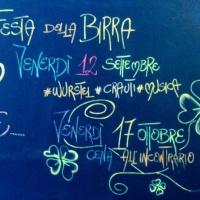 FESTA DELLA BIRRA
VENERDÌ 12 SETTEMBRE
#WURSTEL #CRAUTI #MUSICA
E.....
VENERDÌ 17 OTTOBRE
CENA ALL'INCONTRARIO